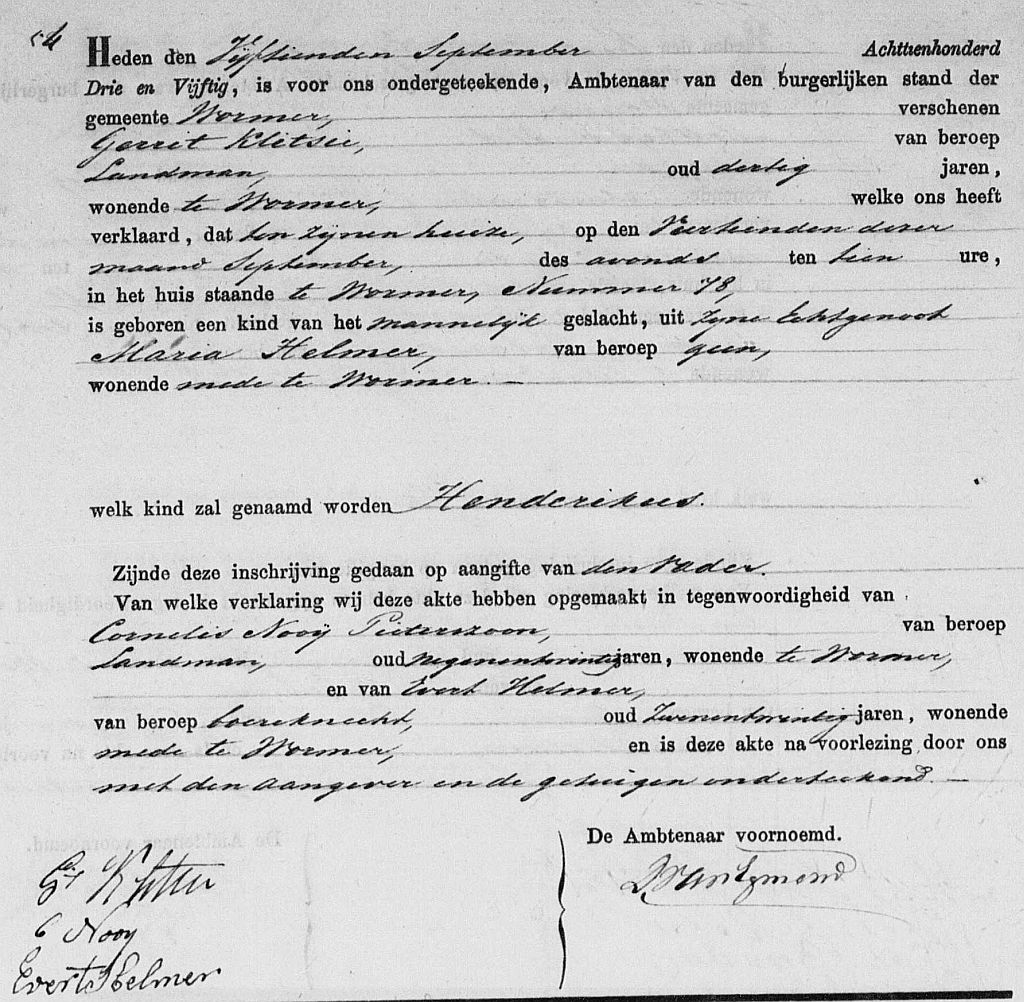 54
Heden den Vijftienden September Achttienhonderd
Drie en Vijftig, is voor ons ondergeteekende, Ambtenaar van den burgerlijken stand der
gemeente Wormer, verschenen
Gerrit Kletsie, van beroep
Landman, oud dertig jaren,
wonende te Wormer, welke ons heeft
verklaard, dat ten zijnen huize, op den Veertienden dezer
maand September, des avonds ten tien ure,
in het huis staande te Wormer, Nummer 78,
is geboren een kind van het mannelijk geslacht, uit zyne Echtgenoot
Maria Helmer, van beroep geen,
wonende mede te Wormer. —
welk kind zal genaamd worden Henderikus.
Zijnde deze inschrijving gedaan op aangifte van den Vader.
Van welke verklaring wij deze akte hebben opgemaakt in tegenwoordigheid van
Cornelis Nooij Pieterszoon, van beroep
Landman, oud negenentwintig jaren, wonende te Wormer,
en van Evert Helmer,
van beroep boereknecht, oud Zevenentwintig jaren, wonende
mede te Wormer, en is deze akte na voorlezing door ons
met den aangever en de getuigen onderteekend. —
De Ambtenaar voornoemd.
C Nooy
Evert Helmer